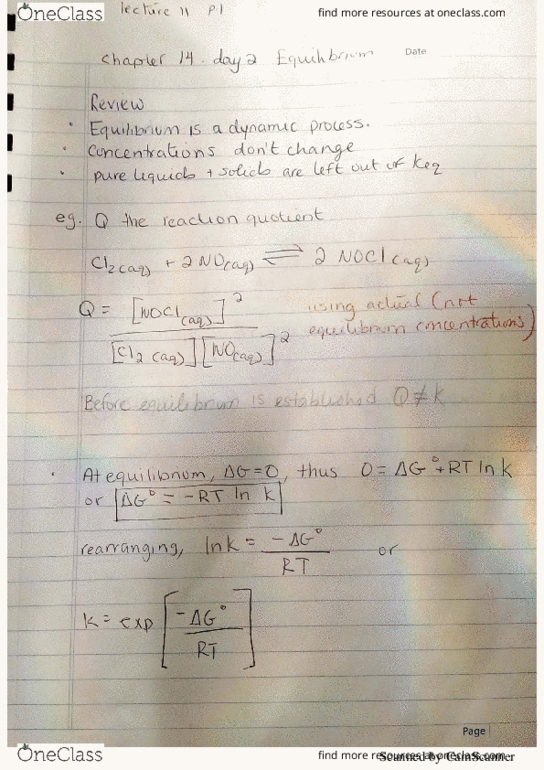 OneClass
lecture 11 P1
find more resources at oneclass.com
Chapter 14. day 2 Equilibrium
Date
Review
• Equilibrium is a dynamic process.
• Concentrations don't change
• pure liquids + solids are left out of Keq
eg. Q the reaction quotient
Cl2(aq) + 2NO(aq) ⇌ 2 NOCl(aq)
Q = [NOCl(aq)]²
[Cl2(aq)][NO(aq)]²
using actual (not
equilibrium concentrations)
Before equilibrium is established Q≠K
• At equilibrium, ΔG=0, thus 0=ΔG°+RT ln k
or ΔG° = -RT ln k
rearranging, lnk = -ΔG° or
RT
k = exp [-ΔG°
RT]
Page
OneClass
find more resources at oneclass.com
Scanned by CamScanner